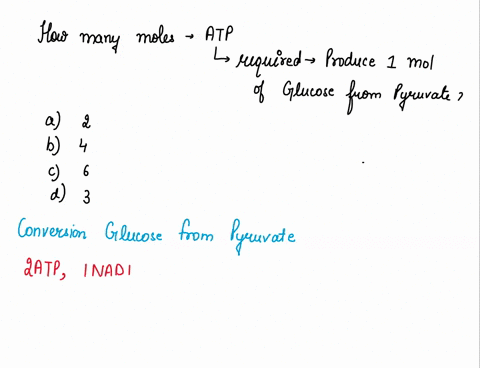 How many moles → ATP
↳ required → Produce 1 mol
of Glucose from Pyruvate ?
a) 2
b) 4
c) 6
d) 3
Conversion Glucose from Pyruvate
2ATP, 1NADI